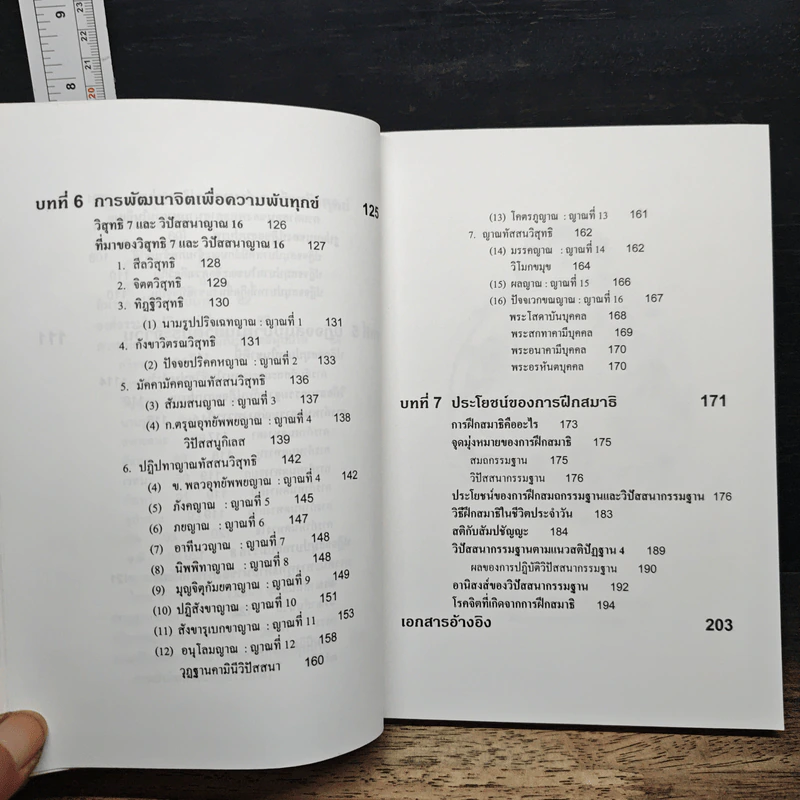 9
23
22
21
8
20
บทที่ 6 การพัฒนาจิตเพื่อความพ้นทุกข์ 125
วิสุทธิ 7 และ วิปัสสนาญาณ 16 126
ที่มาของวิสุทธิ 7 และ วิปัสสนาญาณ 16 127
1. สีลวิสุทธิ 128
2. จิตตวิสุทธิ 129
3. ทิฏฐิวิสุทธิ 130
(1) นามรูปปริจเฉทญาณ : ญาณที่ 1 131
4. กังขาวิตรณวิสุทธิ 131
(2) ปัจจยปริคคหญาณ : ญาณที่ 2 133
5. มัคคามัคคญาณทัสสนวิสุทธิ 136
(3) สัมมสนญาณ : ญาณที่ 3 137
(4) ก.ตรุณอุทยัพพยญาณ : ญาณที่ 4 138
วิปัสสนูกิเลส 139
6. ปฏิปทาญาณทัสสนวิสุทธิ 142
(4) ข. พลวอุทยัพพยญาณ : ญาณที่ 4 142
(5) ภังคญาณ : ญาณที่ 5 145
(6) ภยญาณ : ญาณที่ 6 147
(7) อาทีนวญาณ : ญาณที่ 7 148
(8) นิพพิทาญาณ : ญาณที่ 8 148
(9) มุญจิตุกัมยตาญาณ : ญาณที่ 9 149
(10) ปฏิสังขาญาณ : ญาณที่ 10 151
(11) สังขารุเบกขาญาณ : ญาณที่ 11 153
(12) อนุโลมญาณ : ญาณที่ 12 158
วุฏฐานคามินีวิปัสสนา 160
(13) โคตรภูญาณ : ญาณที่ 13 161
7. ญาณทัสสนวิสุทธิ 162
(14) มรรคญาณ : ญาณที่ 14 162
วิโมกขมุข 164
(15) ผลญาณ : ญาณที่ 15 166
(16) ปัจจเวกขณญาณ : ญาณที่ 16 167
พระโสดาบันบุคคล 168
พระสกทาคามีบุคคล 169
พระอนาคามีบุคคล 170
พระอรหันตบุคคล 170
บทที่ 7 ประโยชน์ของการฝึกสมาธิ 171
การฝึกสมาธิคืออะไร 173
จุดมุ่งหมายของการฝึกสมาธิ 175
สมถกรรมฐาน 175
วิปัสสนากรรมฐาน 176
ประโยชน์ของการฝึกสมถกรรมฐานและวิปัสสนากรรมฐาน 176
วิธีฝึกสมาธิในชีวิตประจำวัน 183
สติกับสัมปชัญญะ 184
วิปัสสนากรรมฐานตามแนวสติปัฏฐาน 4 189
ผลของการปฏิบัติวิปัสสนากรรมฐาน 190
อานิสงส์ของวิปัสสนากรรมฐาน 192
โรคจิตที่เกิดจากการฝึกสมาธิ 194
เอกสารอ้างอิง 203